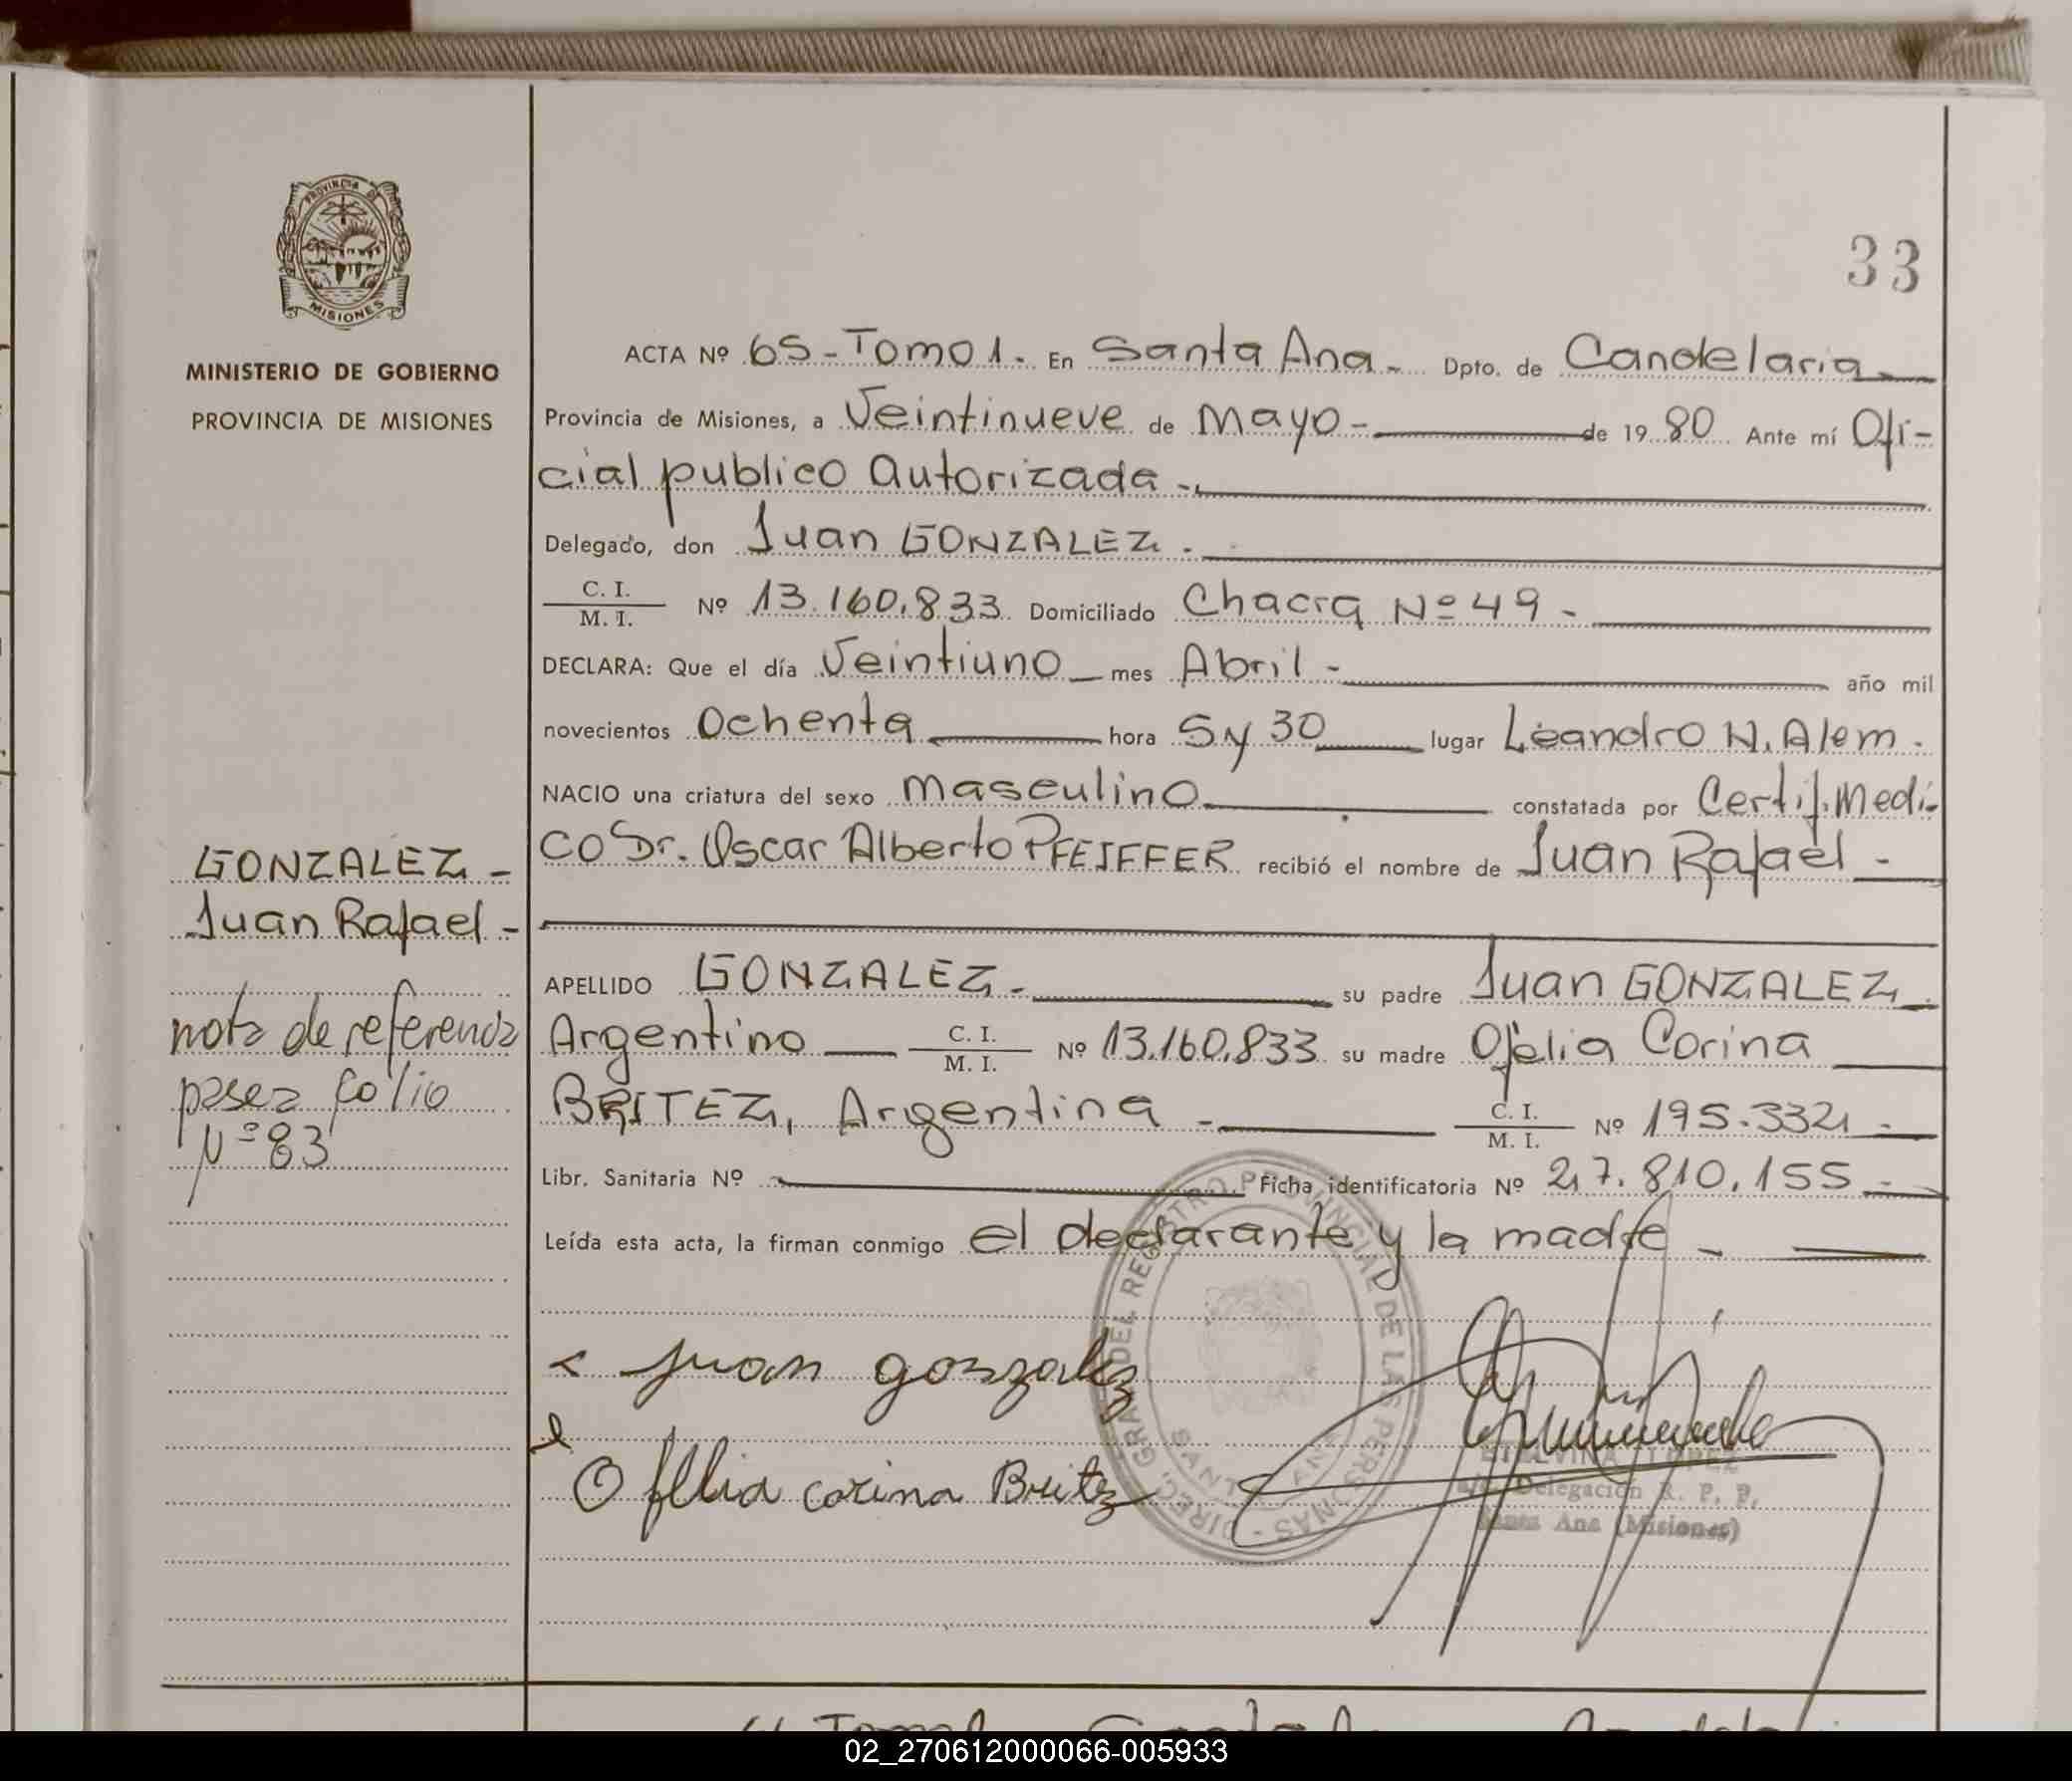 33
PROVINCIA DE
MISIONES
MINISTERIO DE GOBIERNO
PROVINCIA DE MISIONES
ACTA Nº 65 - Tomo 1 - En Santa Ana - Dpto. de Candelaria
Provincia de Misiones, a Veintinueve de Mayo - de 19 80 Ante mí Ofi-
cial publico Autorizada -
Delegado, don Juan GONZALEZ -
C. I. / M. I. Nº 13.160.833 Domiciliado Chacra Nº 49 -
DECLARA: Que el día Veintiuno mes Abril - año mil
novecientos Ochenta hora 5 y 30 lugar Leandro N. Alem -
NACIO una criatura del sexo Masculino constatada por Certif. Medi-
co Dr. Oscar Alberto PFEIFFER recibió el nombre de Juan Rafael -
GONZALEZ -
Juan Rafael -
APELLIDO GONZALEZ - su padre Juan GONZALEZ
Argentino C. I. / M. I. Nº 13.160.833 su madre Ofelia Corina
BRITEZ, Argentina - C. I. / M. I. Nº 195.332 -
nota de referencia
pasea folio
Nº 83
Libr. Sanitaria Nº Ficha identificatoria Nº 27.810.155 -
Leída esta acta, la firman conmigo el declarante y la madre -
Juan gonzalez
Ofelia corina Britez
DIREC. GRAL. DEL REGISTRO PROVINCIAL DE LAS PERSONAS -
SANTA ANA
ETELVINA LOPEZ
Delegación R. P. P.
Santa Ana (Misiones)
02_270612000066-005933